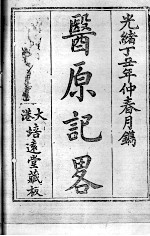 光緒丁丑年仲春月鐫
醫原記畧
大港
培遠堂藏板